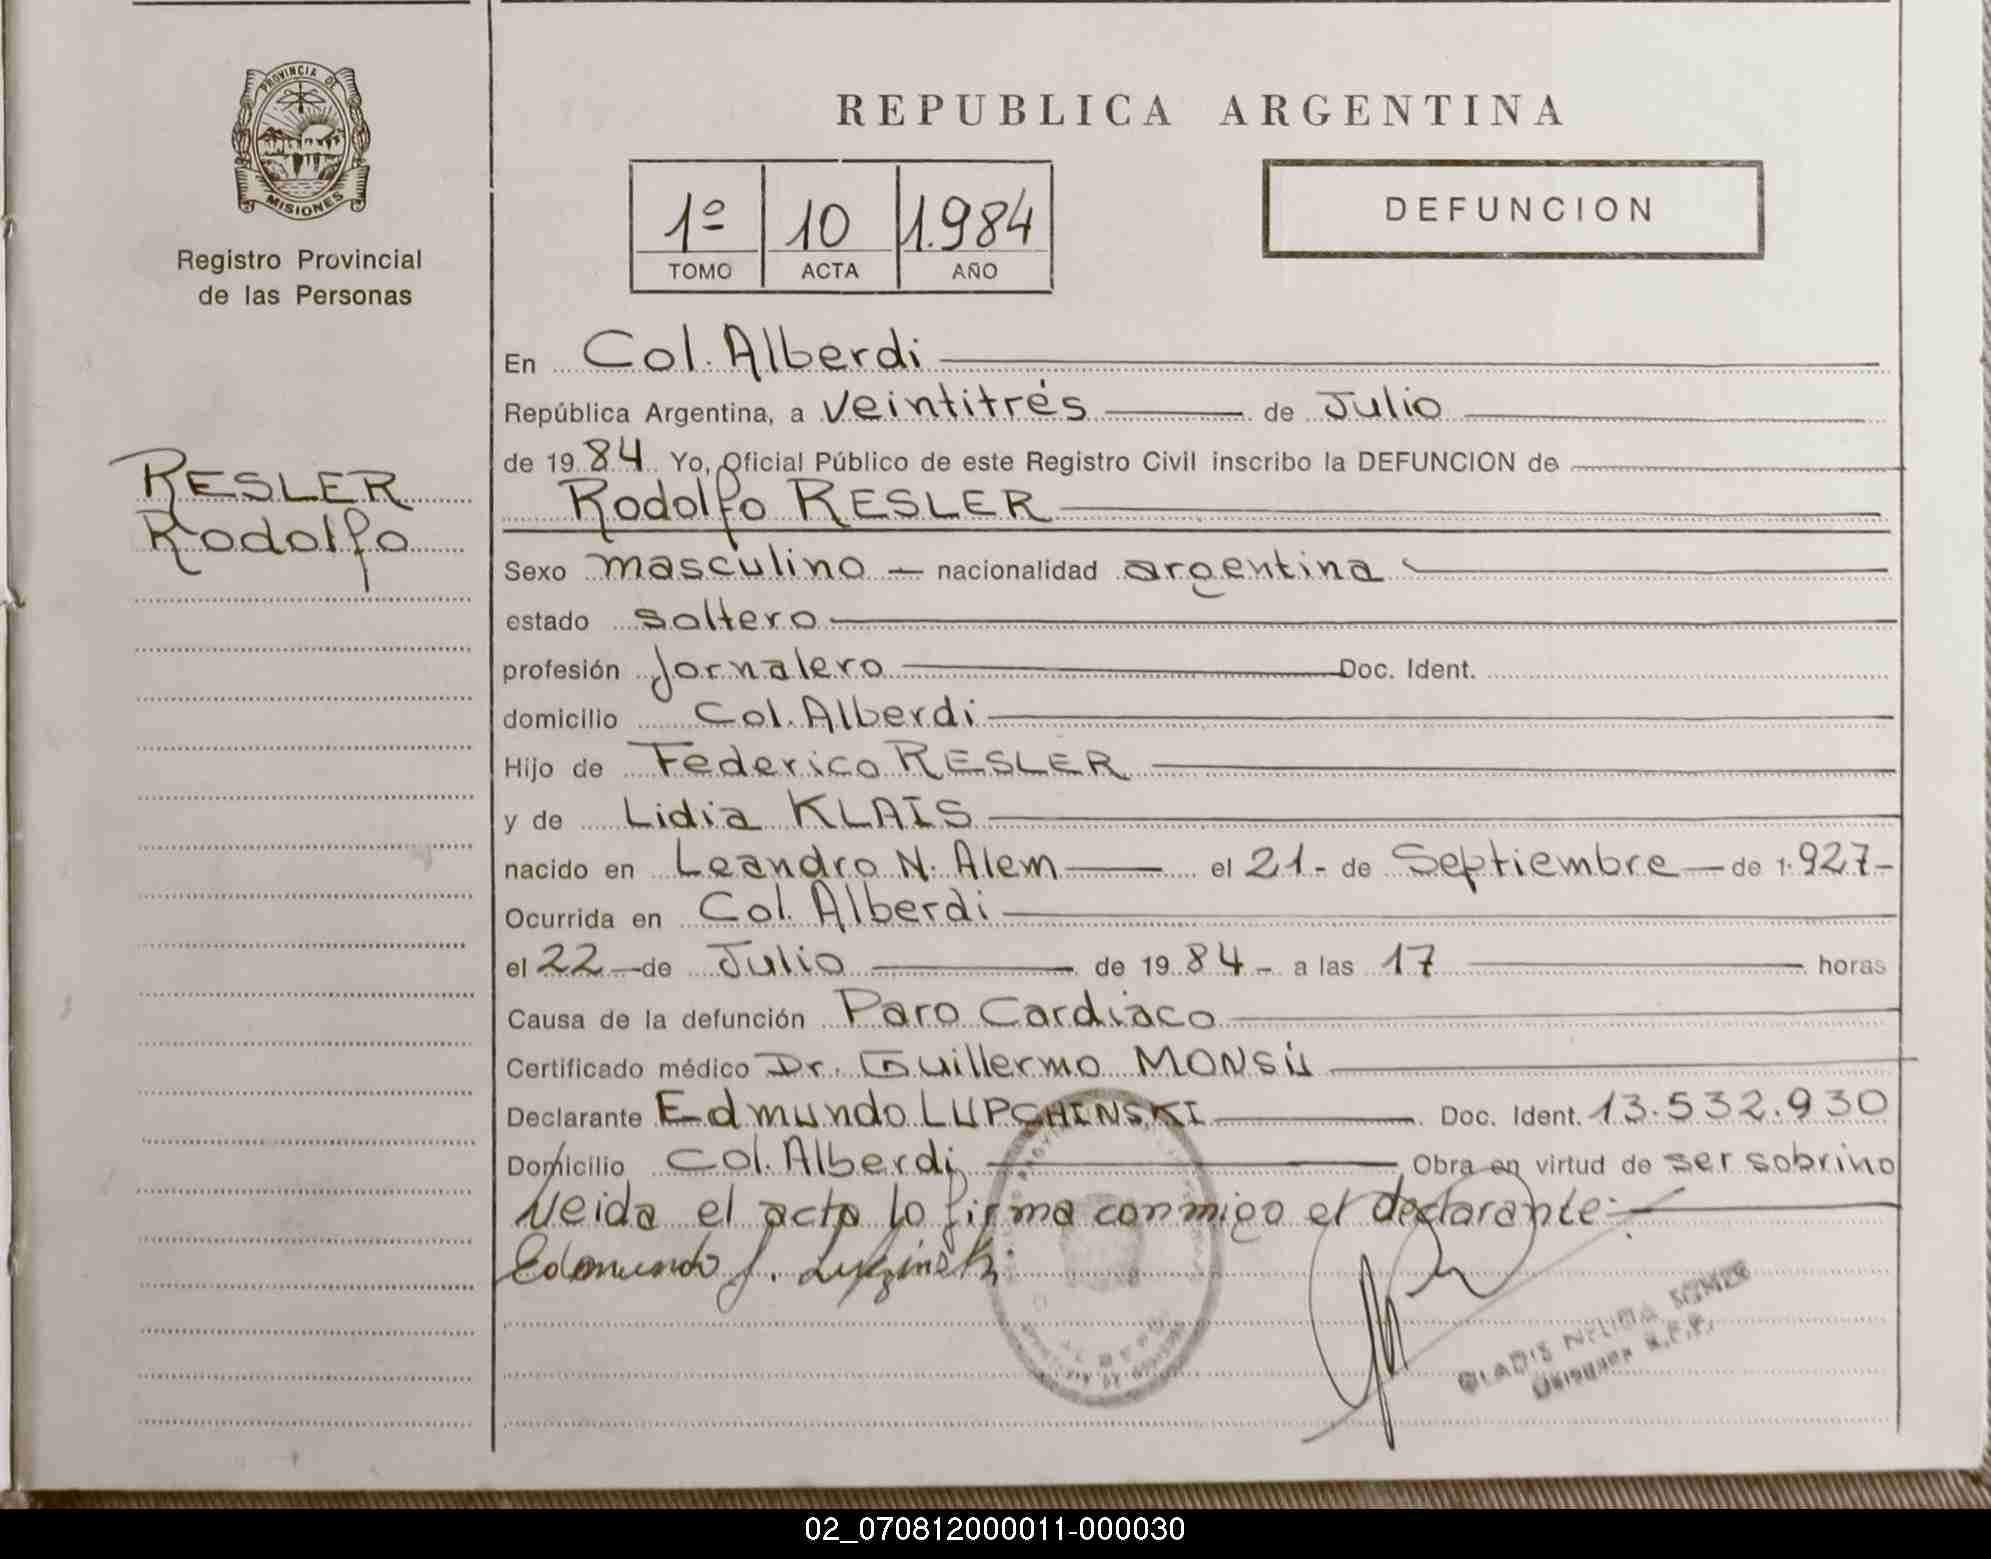 PROVINCIA DE
MISIONES
Registro Provincial
de las Personas
RESLER
Rodolfo
REPUBLICA ARGENTINA
1º 10 1.984
TOMO ACTA AÑO
DEFUNCION
En Col. Alberdi
República Argentina, a veintitrés de Julio
de 1984 Yo, Oficial Público de este Registro Civil inscribo la DEFUNCION de
Rodolfo RESLER
Sexo masculino nacionalidad argentina
estado soltero
profesión Jornalero Doc. Ident.
domicilio Col. Alberdi
Hijo de Federico RESLER
y de Lidia KLAIS
nacido en Leandro N. Alem el 21- de Septiembre de 1.927-
Ocurrida en Col. Alberdi
el 22 de Julio de 1984- a las 17 horas
Causa de la defunción Paro Cardiaco
Certificado médico Dr. Guillermo MONSÚ
Declarante Edmundo LUPCHINSKI Doc. Ident. 13.532.930
Domicilio Col. Alberdi Obra en virtud de ser sobrino
Leida el acta lo firma conmigo el declarante
Edmundo J.
GLADIS NELIDA
02_070812000011-000030